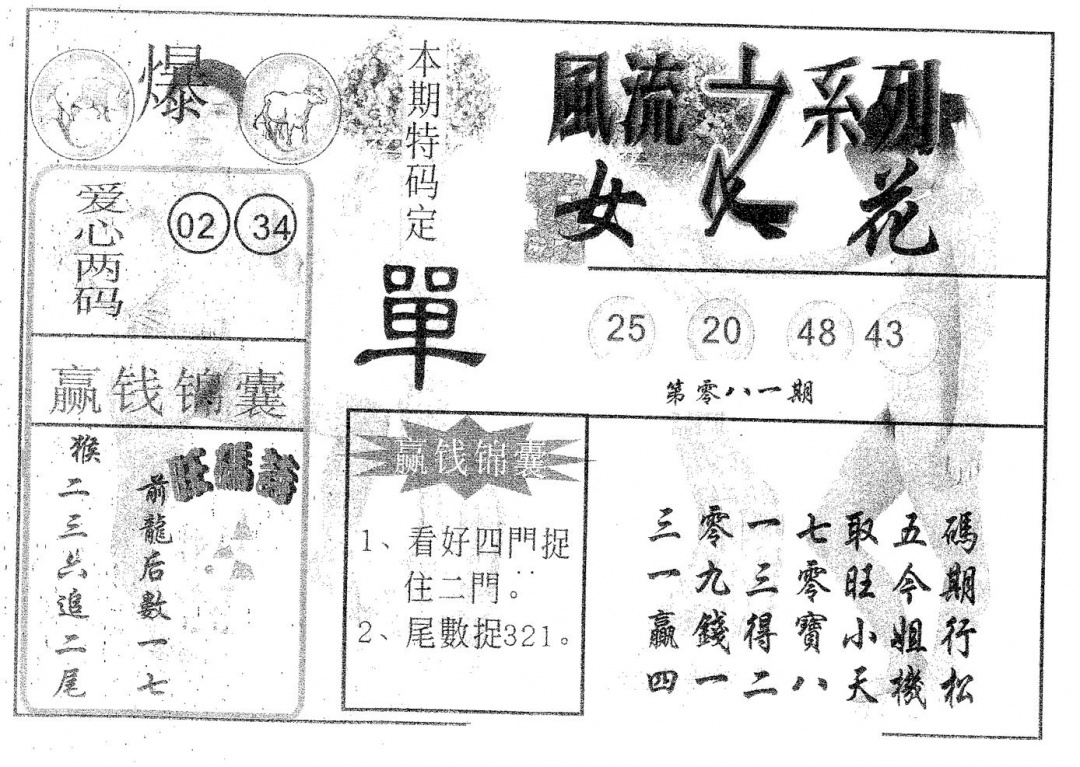 爆
本期特码定
單
風流之系列
女人花
爱心两码
02 34
赢钱锦囊
25 20 48 43
第零八一期
旺碼詩
前龍后數一七
猴二三六追二尾
赢钱锦囊
1、看好四門捉
住二門。
2、尾數捉321。
三零一七取五碼
一九三零旺今期
贏錢得寶小姐行
四一二八天機松